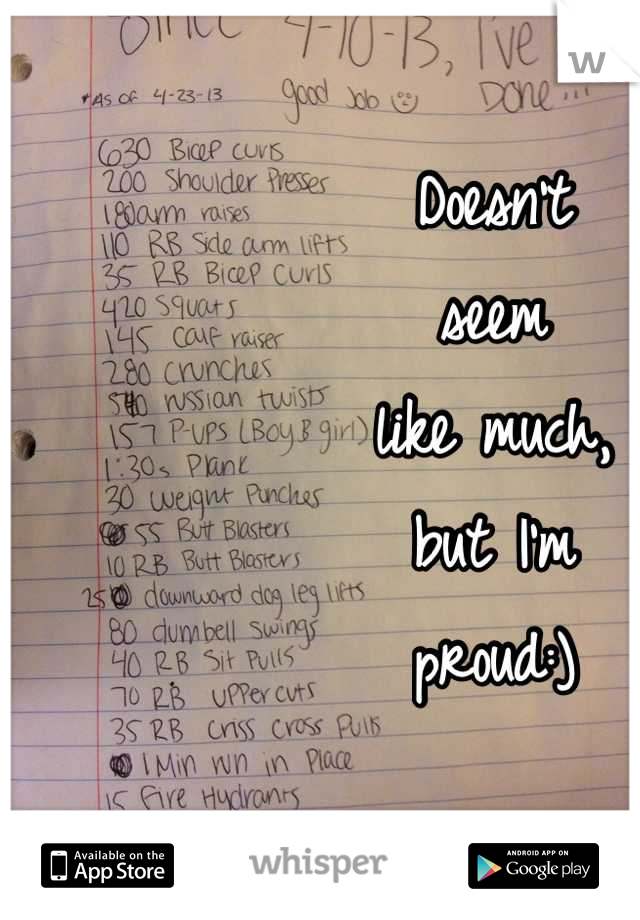 Since 4-10-13, I've
*As of 4-23-13 good Job Done...
w
630 Bicep curls
200 Shoulder Presses
180 arm raises
110 RB Side arm lifts
35 RB Bicep Curls
420 Squats
145 Calf raiser
280 crunches
540 russian twists
157 P-ups (Boy & girl)
1:30s Plank
30 weight Punches
55 Butt Blasters
10 RB Butt Blasters
25 downward dog leg lifts
80 dumbell swings
40 RB Sit Pulls
70 RB uppercuts
35 RB criss cross Pulls
1 Min run in Place
15 fire Hydrants
Doesn't
seem
like much,
but I'm
proud:)
Available on the
App Store
whisper
ANDROID APP ON
Google play